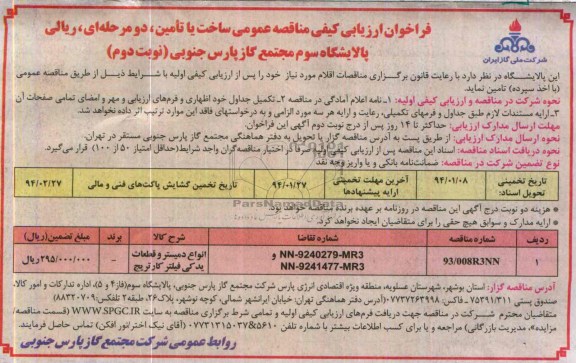 فراخوان ارزیابی کیفی مناقصه عمومی ساخت یا تأمین، دو مرحله‌ای، ریالی
پالایشگاه سوم مجتمع گاز پارس جنوبی (نوبت دوم)
شرکت ملی گاز ایران
این پالایشگاه در نظر دارد با رعایت قانون برگزاری مناقصات اقلام مورد نیاز خود را پس از ارزیابی کیفی اولیه با شرایط ذیل از طریق مناقصه عمومی
(با اخذ سپرده) تامین نماید.
نحوه شرکت در مناقصه و ارزیابی کیفی اولیه: ۱ـ نامه اعلام آمادگی در مناقصه ۲ـ تکمیل جداول خود اظهاری و فرم‌های ارزیابی و مهر و امضای تمامی صفحات آن
۳ـ ارایه مستندات لازم طبق جداول و فرمهای تکمیلی، رعایت و ارایه هر سه مورد الزامی و به درخواستهای فاقد این موارد ترتیب اثر داده نخواهد شد.
مهلت ارسال مدارک ارزیابی: حداکثر تا ۱۴ روز پس از درج نوبت دوم آگهی این فراخوان.
نحوه ارسال مدارک ارزیابی: از طریق پست به آدرس مناقصه گزار یا تحویل به دفتر هماهنگی مجتمع گاز پارس جنوبی مستقر در تهران.
نحوه دریافت اسناد مناقصه: اسناد این مناقصه پس از ارزیابی کیفی صرفا در اختیار مناقصه گران واجد شرایط (حداقل امتیاز ۵۰ از ۱۰۰) قرار می‌گیرد.
نوع تضمین شرکت در مناقصه: ضمانتنامه بانکی و یا واریز وجه نقد
تاریخ تخمینی تحویل اسناد: ۹۴/۰۱/۰۸ آخرین مهلت تخمینی ارایه پیشنهادها ۹۴/۰۱/۲۷ تاریخ تخمین گشایش پاکت‌های فنی و مالی ۹۴/۰۲/۲۷
هزینه دو نوبت درج آگهی این مناقصه در روزنامه بر عهده برنده مناقصه خواهد بود.
ارایه مدارک و سوابق هیچ حقی را برای متقاضیان ایجاد نخواهد کرد.
ردیف شماره مناقصه شماره تقاضا شرح کالا برند مبلغ تضمین (ریال)
۱ 93/008R3NN NN-9240279-MR3 و NN-9241477-MR3 انواع دمیستر و قطعات یدکی فیلتر کارتریج - ۲۹۵/۰۰۰/۰۰۰ریال
آدرس مناقصه گزار: استان بوشهر، شهرستان عسلویه، منطقه ویژه اقتصادی انرژی پارس شرکت مجتمع گاز پارس جنوبی، پالایشگاه سوم (فاز۴ و ۵)، اداره تدارکات و امور کالا،
صندوق پستی ۷۵۳۹۱/۳۱۱ ـ فاکس: ۰۷۷۳۷۲۶۳۹۹۸ (آدرس دفتر هماهنگی تهران: خیابان ایرانشهر شمالی، کوچه نوشهر، پلاک۲۶، طبقه۲ تلفکس: ۸۸۳۲۰۷۰۹)
متقاضیان محترم شرکت در مناقصه جهت دریافت فرم‌های ارزیابی کیفی اولیه و تمامی شرط برگزاری مناقصه به سایت WWW.SPGC.IR (قسمت مناقصه/
مزایده، مدیریت بازرگانی) مراجعه و یا برای کسب اطلاعات بیشتر با شماره تلفن (آقای نیک اختر/نور افکن) تماس حاصل فرمایند.
روابط عمومی شرکت مجتمع گاز پارس جنوبی